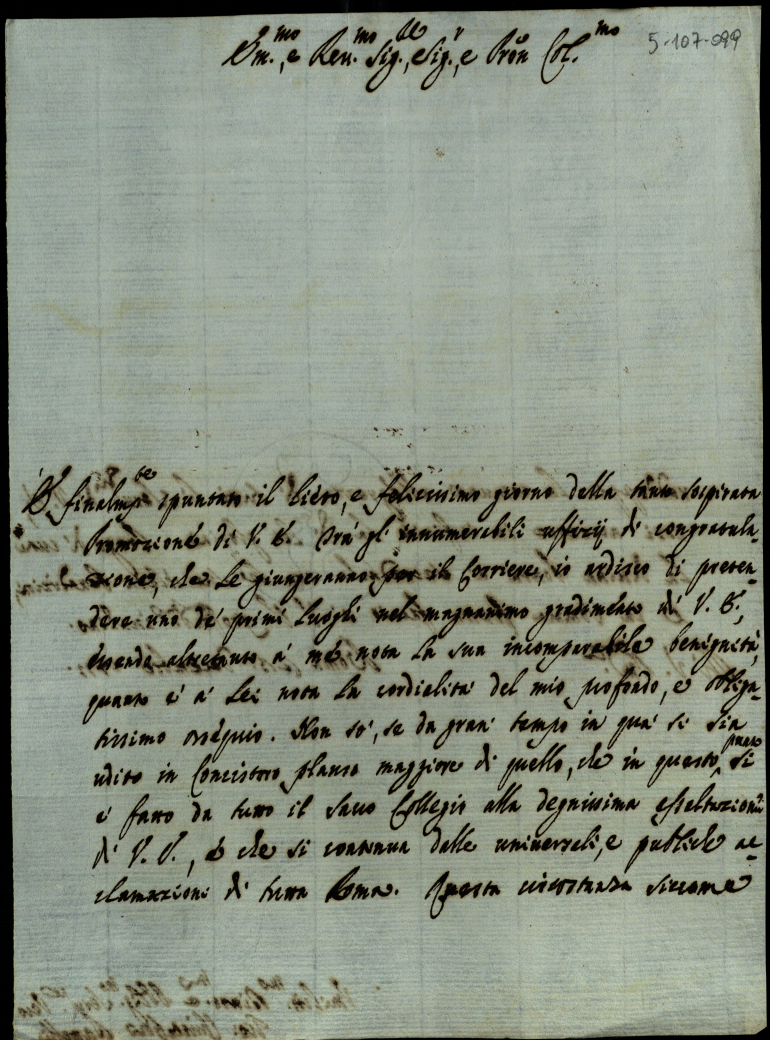 5-107-099
Em.mo, e Rev.mo Sig.re, Sig.r, e Pròn Col.mo
È finalm.te spuntato il lieto, e felicissimo giorno della tanto sospirata
Promozione di V. E. Trà gl' innumerabili uffizij di congratula-
zione, che Le giungeranno per il Corriere, io ardisco di preten-
dere uno de' primi luoghi nel magnanimo gradimento di V. E.,
essendo altretanto à me nota la sua incomparabile benignità,
quanto è à Lei nota la cordialità del mio profondo, e obliga-
tissimo ossequio. Non sò, se da gran tempo in quà si sia
udito in Concistoro plauso maggiore di quello, che in questo si
è fatto da tutto il Sacro Collegio alla degnissima essaltazione
di V. E., e che si continua dalle universali, e publiche ac-
clamazioni di tutta Roma. Questa circostanza siccome